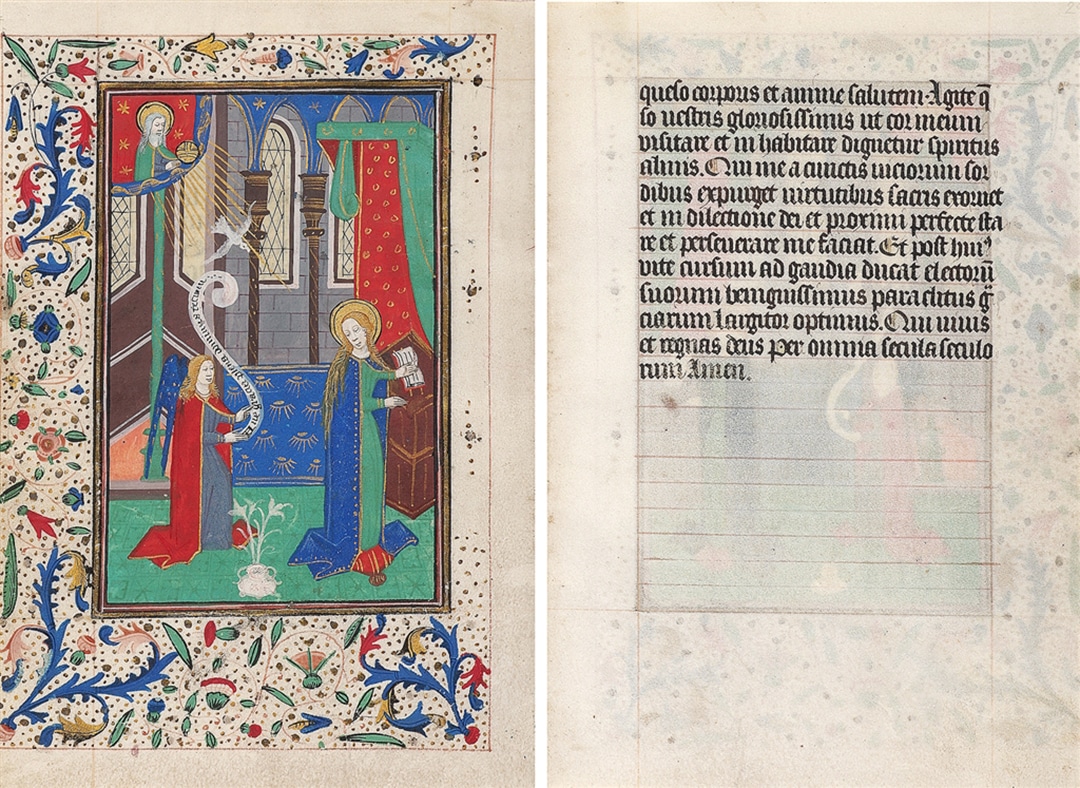 gracia plena dominus tecum
queso corporis et anime salutem. Agite q̄
so uestris gloriosissimus ut cor meum
uisitare et in habitare dignetur spiritus
almus. Qui me a cunctis uiciorum sor
dibus expurget uirtutibus sacris exornet
et in dilectione dei et proximi perfecte sta
re et perseuerare me faciat. Et post huiꝰ
uite cursum ad gaudia ducat electorū
suorum benignissimus paraclitus gͣ
ciarum largitor optimus. Qui uiuis
et regnas deus per omnia secula seculo
rum Amen.